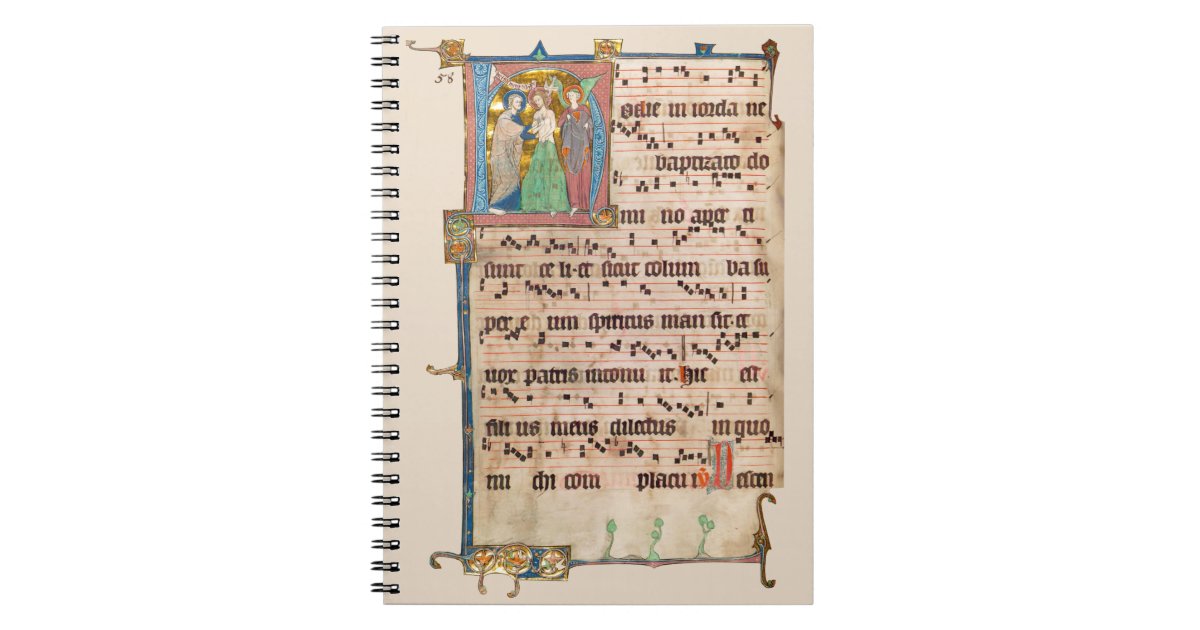 58
Hodie in iorda ne
baptizato do
mi no aper ti
sunt ce li·et sicut colum ba su
per e um spiritus man sit·et
uox patris intonu it·hic est
fili us meus dilectus in quo
mi chi com placu it V Descen